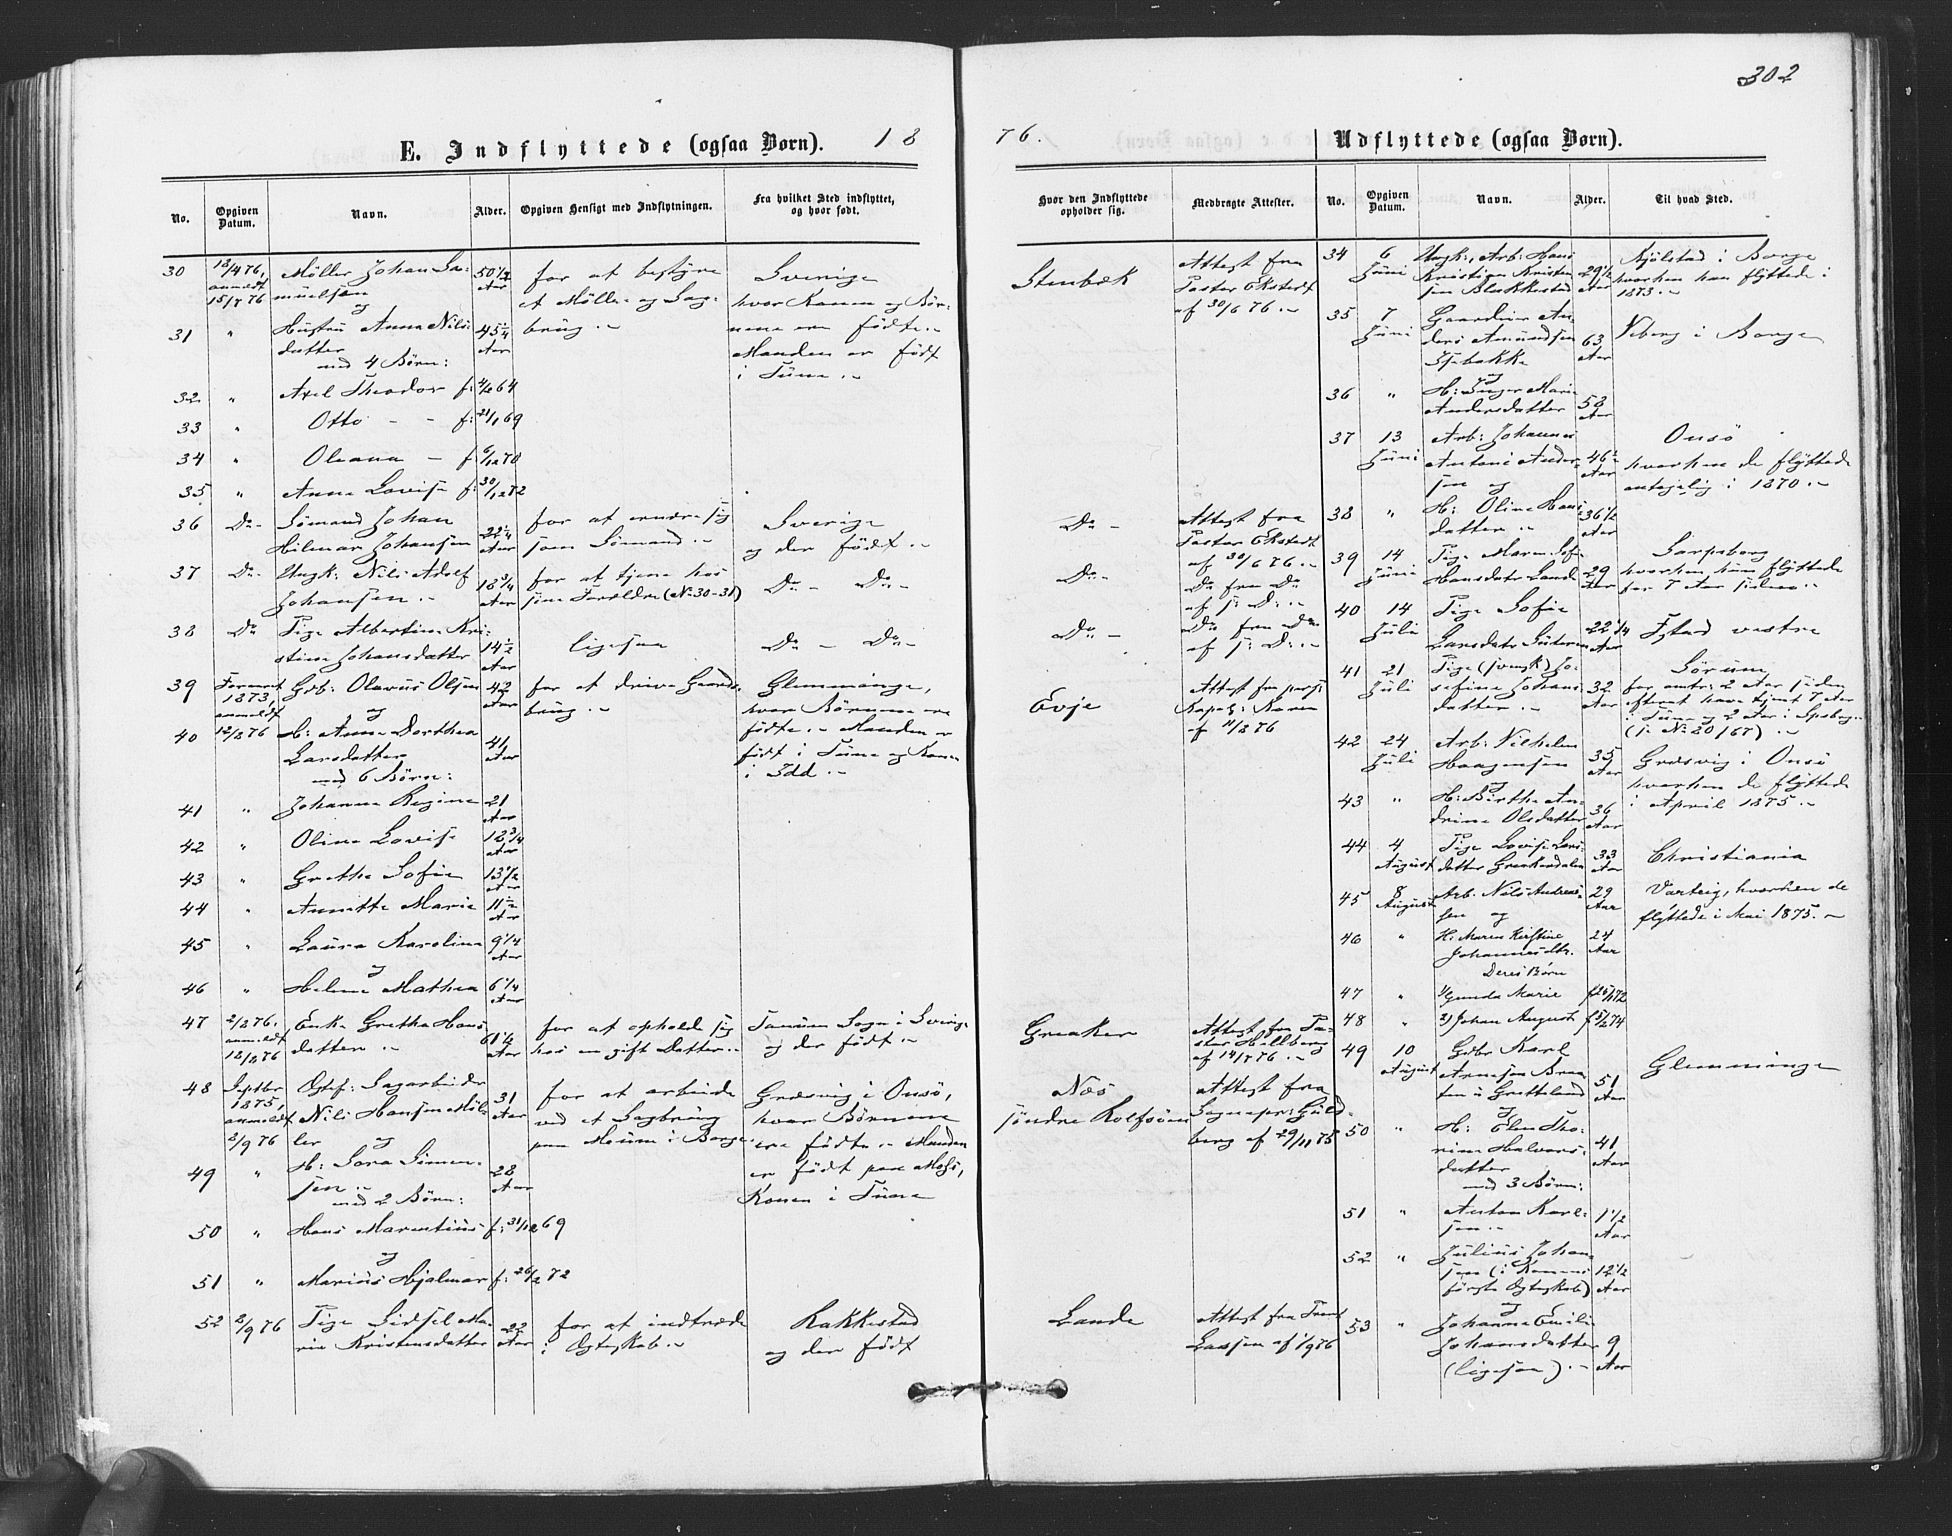 302
E. Indflyttede (ogsaa Børn). 18
76.
Udflyttede (ogsaa Børn).
No.
Opgiven Datum.
Navn.
Alder.
Opgiven Hensigt med Indflytningen.
Fra hvilket Sted indflyttet, og hvor født.
Hvor den Indflyttede opholder sig.
Medbragte Attester.
No.
Opgiven Datum.
Navn.
Alder.
Til hvad Sted.
30
anmeldt
Møller Johan Sa-
muelsen
og
50 1/2
Aar
for at bestyre
et Mølle- og Sag-
brug.-
Sverige
hvor Konen og Bør-
nene ere fødte.-
Manden er født
i Tune.-
Stenbæk
Attest fra
Pastor Ekstedt
af 30/6 76.-
31 "
Hustru Anna Nils-
datter
med 4 Børn:
45 1/4
Aar
32 " Axel Theodor f:
33 " Otto - - f: 21/1 69
34 " Oleana - f: 6/12 70
35 " Anna Lovise f: 30/12 72
36 Do-
Sømand Johan
Hilmar Johansen
22 1/4
Aar
for at ernære sig
som Sømand.-
Sverige
og der født.-
Do-
Attest fra
Pastor Ekstedt
af 30/6 76.-
37 Do-
Ungk: Nils Adolf
Johansen.-
18 3/4
Aar
for at tjene hos
sine Forældre (No 30-31)
Do- Do-
Do-
Do fra Do
af s: D:.-
38 Do
Pige Albertine Kri-
stine Johansdatter
14 1/2
Aar
ligesaa
Do- Do-
Do-
Do fra Do
af s: D:.-
39
1873,
anmeldt
12/8 76
Gdb: Olavus Olsen
og
42
Aar
for at drive Gaards-
brug.-
Glemminge,
hvor Børnene ere
fødte.- Manden er
født i Tune og Konen
i Idd.-
Evje
Attest fra pers:
Kapel:
af 11/8 76
40
H: Anne Dorthea
Larsdatter
med 6 Børn:
41
Aar
41 " Johanne Regine 21
Aar
42 " Oline Lovise 18 3/4
Aar
43 " Grethe Sofie 13 1/2
Aar
44 " Annette Marie 11 1/2
Aar
45 " Laura Karoline 9 1/4
Aar
og
46 " Helene Mathea 6 1/4
Aar
47 2/8 76.
anmeldt
12/8 76
Enke Grethe Hans-
datter.-
61 1/2
Aar
for at opholde sig
hos en gift Datter.-
Tanum Sogn i Sverige
og der født.-
Greaker
Attest fra Pa-
stor Hellberg
48 Septbr
1875,
anmeldt
2/9 76
Gift: Sagarbeider
Nils Hansen Møl-
ler og
31
Aar
for at arbeide
ved et Sagbrug
paa Moum i Borge
Græsvig i Onsø,
hvor Børnene
ere fødte.- Manden
er født paa Moss,
Konen i Tune
Næs
søndre Rolfsøen
Attest fra
Sognepr: Guld-
berg af 29/11 75
49 "
H: Sora Simen-
sen.-
med 2 Børn:
28
Aar
50 " Hans Marentius f: 31/12 69
og
51 " Marius Hjalmar f: 26/2 72
52 2/9 76
Pige Sidsel Ma-
rie Kristensdatter
22
Aar
for at indtræde
i Ægteskab.-
Rakkestad
og der født
Lande
Attest fra
Lassen af 1/9 76
34 6
Juni
Ungk:, Arb: Hans
Kristian Kristen-
sen Blakkestad
29 1/2
Aar
Kjølstad i Borge
hvorhen han flyttede i
1873.-
35 7
Juni
Gaardeier An-
ders Amundsen
og
63
Aar
Neberg i Borge
36 "
H: Inger Marie
Andersdatter
58
Aar
37 13
Juni
Arb: Johannes
Antoni Ander-
sen og
46 1/2
Aar
Onsø
hvorhen de flyttede
antagelig i 1870.-
38 "
H: Oline Hans-
datter.-
36 1/2
Aar
39 14
Juni
Pige Maren Sofie
Hansdatr Lande
29
Aar
Sarpsborg
hvorhen hun flyttede
for 7 Aar siden.-
40 14
Juli
Pige Sofie
Larsdatr
22 1/4
Aar
vestre
41 21
Juli
Pige (svensk) Jo-
sefine Johans-
datter.-
32
Aar
Sørum
for omtr: 2 Aar siden
efterat have tjent 7 Aar
i Tune og 2 Aar i Spsborg
(s. No 20/67).-
42 24
Juli
Arb: Vilhelm
Haagensen
og
35
Aar
Græsvig i Onsø
hvorhen de flyttede
i April 1875.-
43 "
H: Birthe An-
drine Olsdatter
36
Aar
44 4
August
Pige Lovise Lars-
datter Greakerdalen
33
Aar
Christiania
45 8
August
Arb: Nils Andreas-
sen og
29
Aar
Varteig, hvorhen de
flyttede i Mai 1875.-
46 "
H: Maren Kirstine
Johannesdtr.
Deres Børn
24
Aar
47 " 1) Gunda Marie
48 " 2) Johan August
49 10
August
Gdbr Karl
Arnesen Braa-
ten u Gretteland
og
51
Aar
Glemminge
50 "
H: Elen Tho-
rine Halvors-
datter
med 3 Børn:
41
Aar
51 "
Anton Karl-
sen.-
1 1/2
Aar
52 "
Julius Johan-
sen (i Konens
første Ægteskab)
og
12 1/2
Aar
53 "
Johanne Emilie
Johansdatter
(ligesaa).-
9
Aar